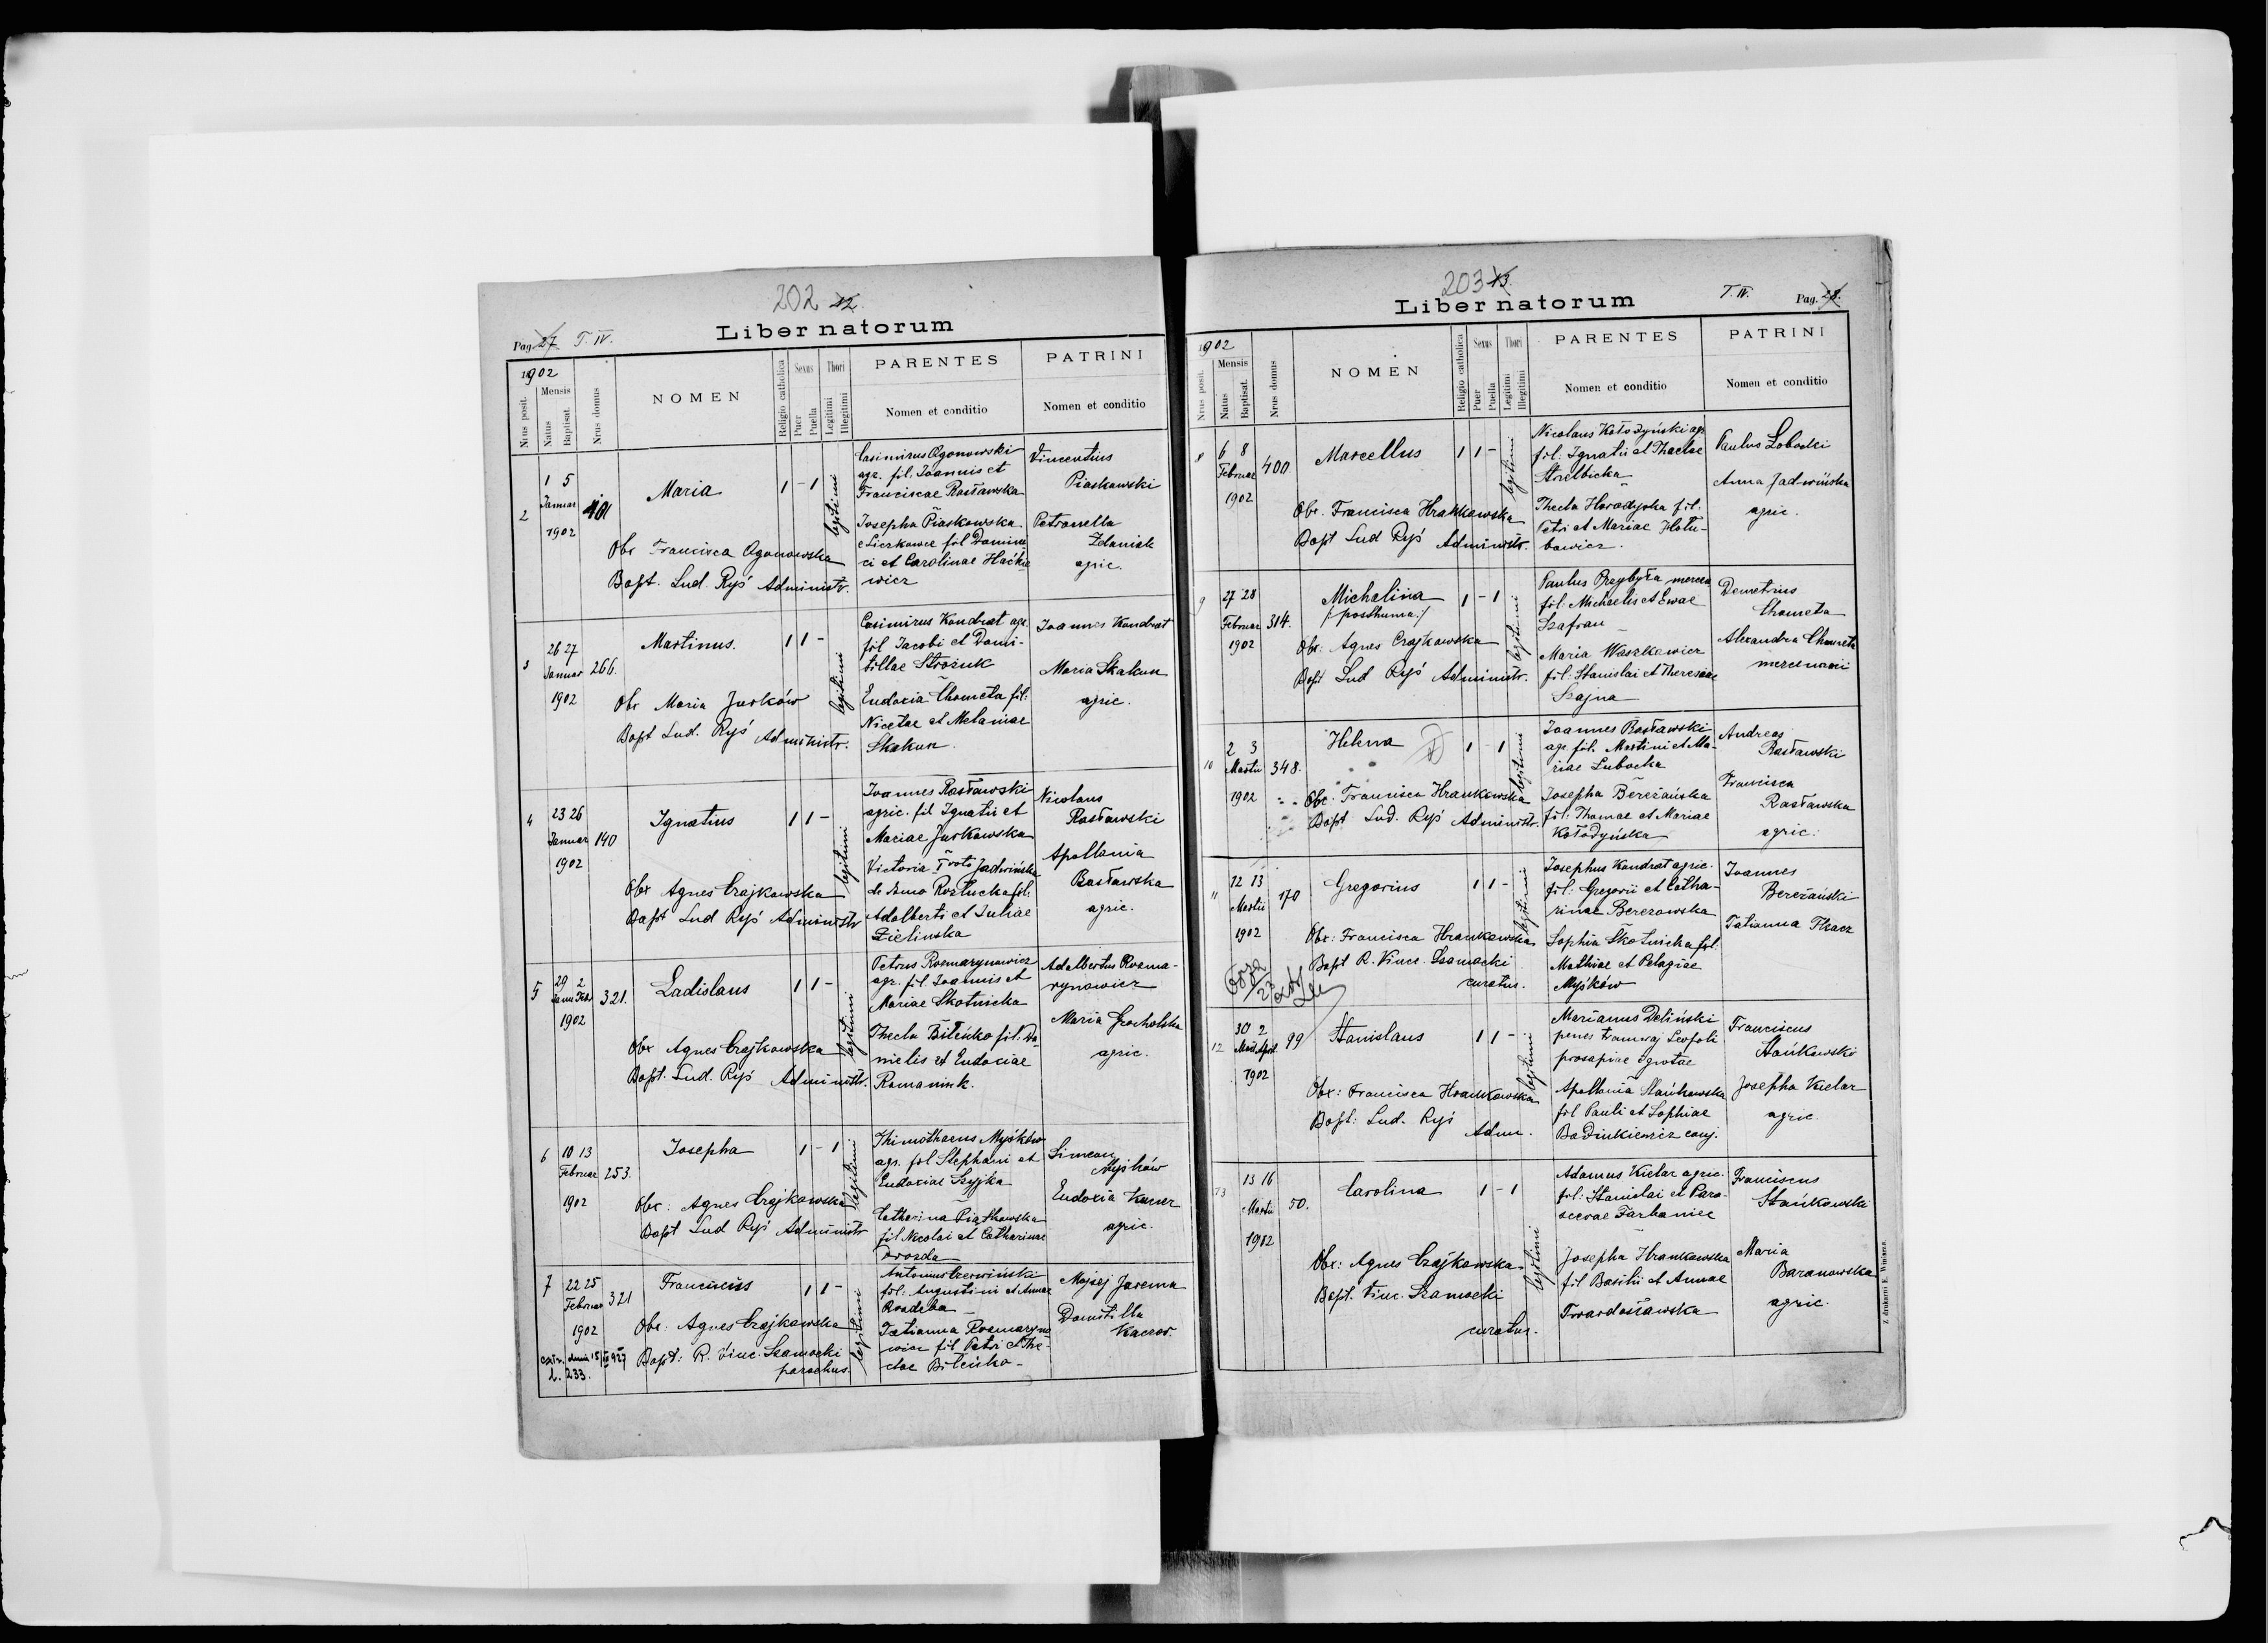 202 12.
Liber natorum
Pag. 27 T. IV.
1902
Nrus posit.
Mensis
Natus
Baptisat.
Nrus domus
NOMEN
Religio catholica
Sexus
Puer
Puella
Thori
Legitimi
Illegitimi
PARENTES
Nomen et conditio
PATRINI
Nomen et conditio
2
1 5
Januar
1902
401
Maria
1 - 1
legitimi
Obs Francisca Ogonowska
Bapt. Lud. Ryś Administr.
Casimirus Ogonowski
agr. fil. Joannis et
Franciscae Rasławska
Josepha Piaskowska
fil Domini
ci et Carolinae Haćkie
wicz
Vincentius
Piaskowski
Petronella
Zdaniak
agric.
3
26 27
Januar
1902
266.
Martinus.
1 1 -
legitimi
Obs Maria Jurków
Bapt Lud. Ryś Administr.
Casimirus Kondrat agr.
fil Jacobi et Domi-
tillae Strożuk
Eudoxia Chometa fil:
Nicetae et Melaniae
Skakun.
Joannes Kondrat
Maria Skakun
agric.
4
23 26
Januar
1902
140
Ignatius
1 1 -
legitimi
Obs Agnes Czajkowska
Bapt Lud Ryś Administr
Joannes Rasławski
agric. fil Ignatii et
Mariae Jurkowska
Victoria I voto Jadwińska
de domo Rozłucka fil.
Adalberti et Juliae
Zielinska
Nicolaus
Rasławski
Apollonia
Rasławska
agric.
5
29 2
Janu Feb
1902
321.
Ladislaus
1 1 -
legitimi
Obs Agnes Czajkowska
Bapt. Lud. Ryś Administr.
Petrus Rozmarynowicz
agr. fil. Joannis et
Mariae Skotnicka
Thecla Bileńko fil. Da
nielis et Eudoxiae
Romaniuk.
Adalbertus Rozma-
rynowicz
Maria Grocholska
agric.
6
10 13
Februar
1902
253.
Josepha
1 - 1
legitimi
Obs: Agnes Czajkowska
Bapt Lud Ryś Administr
Thimothaeus Myśków
agr. fil Stephani et
Eudoxiae Szyjka
Catharina Piątkowska
fil Nicolai et Catharinae
Drozda
Simeon
Myśków
Eudoxia Kaczor
agric.
7
22 25
Februar
1902
321
Franciscus
1 1 -
legitimi
Obs: Agnes Czajkowska
Bapt: R. Vinc. Szamocki
parochus.
Antonius Czerwiński
fil: Augustini et Annae
Tatianna Rozmaryno
wicz fil Petri et The-
clae Bileńko-
Mojsej Jarema
Domitilla
Kaczor.
dnia 15/
L. 233.
203 13.
Liber natorum
T. IV.
Pag. 28.
1902
Nrus posit.
Mensis
Natus
Baptisat.
Nrus domus
NOMEN
Religio catholica
Sexus
Puer
Puella
Thori
Legitimi
Illegitimi
PARENTES
Nomen et conditio
PATRINI
Nomen et conditio
8
6 8
Februar
1902
400
Marcellus
1 1 -
legitimi
Obs. Francisca Hrankowska
Bapt Lud Ryś Administr.
Nicolaus Kołodyński agr
fil: Ignatii et Theclae
Strelbicka
Thecla Horodyska fil.
Petri et Mariae Hołu-
bowicz.
Paulus Lobocki
Anna Jadwińska
agric.
9
27 28
Februar
1902
314.
Michalina
/: posthuma :/
1 - 1
legitimi
Obs: Agnes Czajkowska
Bapt Lud Ryś Administr.
Paulus Przybyła mercen
fil: Michaelis et Evae
Szafran
Maria Waszkiewicz
fil: Stanislai et Theresiae
Szajna
Demetrius
Chometa
Alexandra Chometa
mercenarii
10
2 3
Martii
1902
348.
Helena
1 - 1
legitimi
Obs: Francisca Hrankowska
Bapt Lud. Ryś Administr.
Joannes Rasławski
agr. fil. Martini et Ma-
riae Lubocka
Josepha Bereżańska
fil. Thomae et Mariae
Kołodyńska
Andreas
Rasławski
Francisca
Rasławska
agric.
11
12 13
Martii
1902
170
Gregorius
1 1 -
legitimi
Obs: Francisca Hrankowska
Bapt R. Vinc. Szamocki
curatus.
Josephus Kondrat agric.
fil: Gregorii et Catha-
rinae Berezowska
Sophia Skotnicka fil.
Mathiae et Pelagiae
Myśków
Joannes
Bereżański
Tatianna Tkacz
12
30 2
Mart April
1902
99
Stanislaus
1 1 -
legitimi
Obs: Francisca Hrankowska
Bapt: Lud. Ryś
Adm.
Marianus Deliński
penes tramwaj Leopoli
prosapiae ignotae
Apollonia Stańkowska
fil Pauli et Sophiae
Badinkiewicz conj.
Franciscus
Stańkowski
Josepha Kielar
agric.
13
13 16
Martii
1902
50.
Carolina
1 - 1
legitimi
Obs: Agnes Czajkowska
Bapt. Vinc. Szamocki
curatus.
Adamus Kielar agric.
fil: Stanislai et Para-
scevae Farbaniec
Josepha Hrankowska
fil Basilii et Annae
Twardosławska
Franciscus
Stańkowski
Maria
Baranowska
agric.
Z drukarni E. Winiarza.